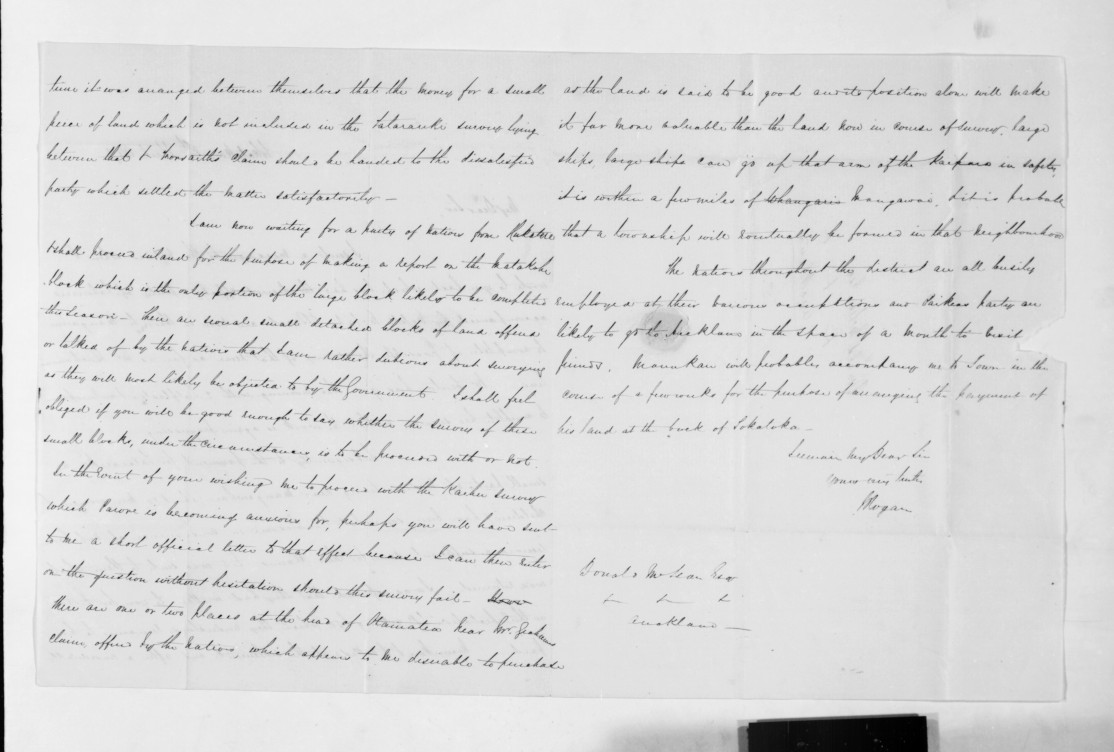 time it was arranged between themselves that the money for a small
piece of land which is not included in the Tatarariki survey lying
between that & Forsaith's claim should be handed to the dissatisfied
party which settled the matter satisfactorily —
I am now waiting for a party of natives from
& shall proceed inland for the purpose of making a report on the Matakohe
block which is the only portion of the large block likely to be completed
this season — There are several small detached blocks of land offered
or talked of by the natives that I am rather dubious about surveying
as they will most likely be objected to by the Government. I shall feel
obliged if you will be good enough to say whether the survey of these
small blocks, under the circumstances, is to be proceeded with or not.
In the event of your wishing me to proceed with the Kaihu survey
which Parore is becoming anxious for, perhaps you will have sent
to me a short official letter to that effect because I can then enter
on the question without hesitation should this survey fail —
There are one or two places at the head of Otamatea near Mr. Grahams
claim, offered by the natives, which appears to me desirable to purchase
as the land is said to be good and its position alone will make
it far more valuable than the land now in course of survey. large
ships large ships can go up that arm of the Kaipara in safety,
it is within a few miles of Whangarei Mangawai, & it is probable
that a township will eventually be formed in that neighbourhood
The natives throughout the district are all busily
employed at their various occupations and Tirkeas party are
likely to go to Auckland in the space of a month to visit
friends. Manukau will probably accompany me to Town in the
course of a few weeks for the purpose of arranging the payment of
his land at the back of Tokatoka —
I remain My Dear Sir
yours very truly
J Rogan
Donald McLean Esq
Auckland —